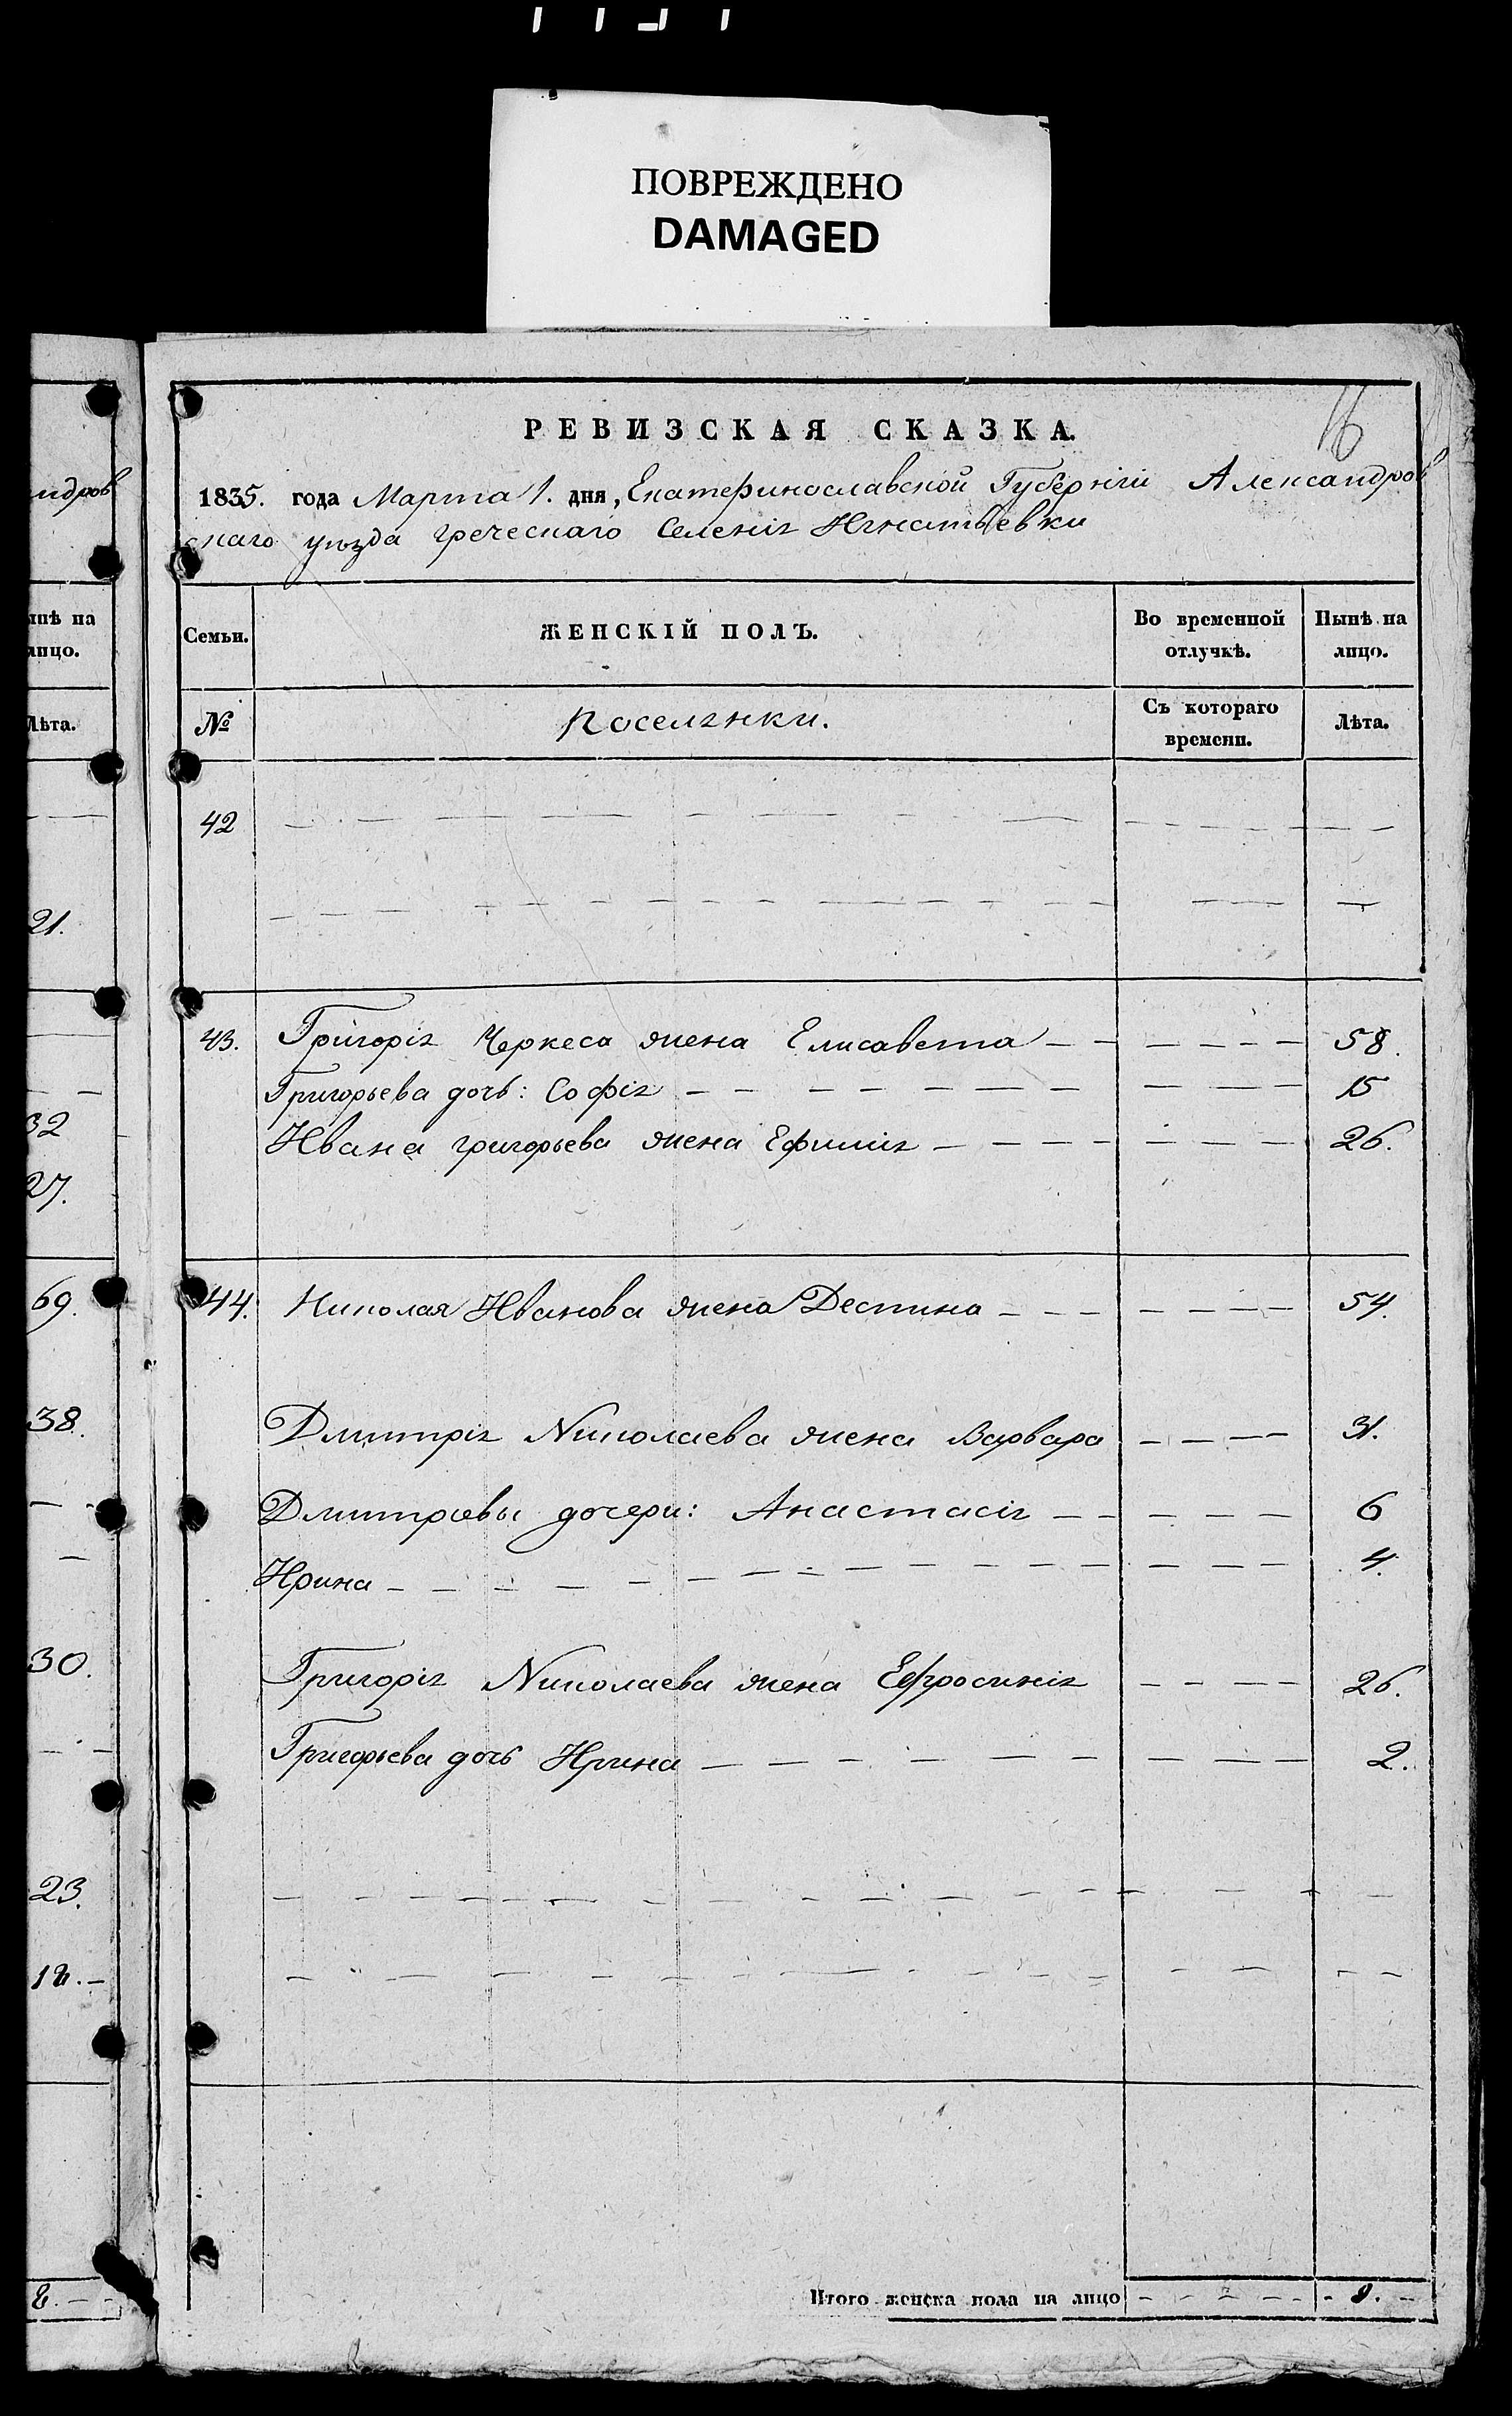 ПОВРЕЖДЕНО
DAMAGED
РЕВИЗСКАЯ СКАЗКА.
16
1835. года Марта 1. дня, Екатеринославской Губерніи Александров
скаго уѣзда греческаго Селенія Игнатьевки
Семьи.
ЖЕНСКІЙ ПОЛЪ.
Во временной отлучкѣ.
Нынѣ на лицо.
№
Поселянки.
Съ котораго времени.
Лѣта.
42
43. Григорія Черкеса жена Елисавета 58.
Григорьева дочь: Софія 15
Ивана григорьева жена Ефимія 26.
44. Николая Иванова жена Деспина 54.
Дмитрія Николаева жена Варвара 31.
Дмитріевы дочери: Анастасія 6
Ирина 4.
Григорія Николаева жена Ефросинія 26.
Григорьева дочь Ирина 2.
Итого женска пола на лицо
ндров
ынѣ на
лицо.
Лѣта.
21.
32
27.
69.
38.
30.
23.